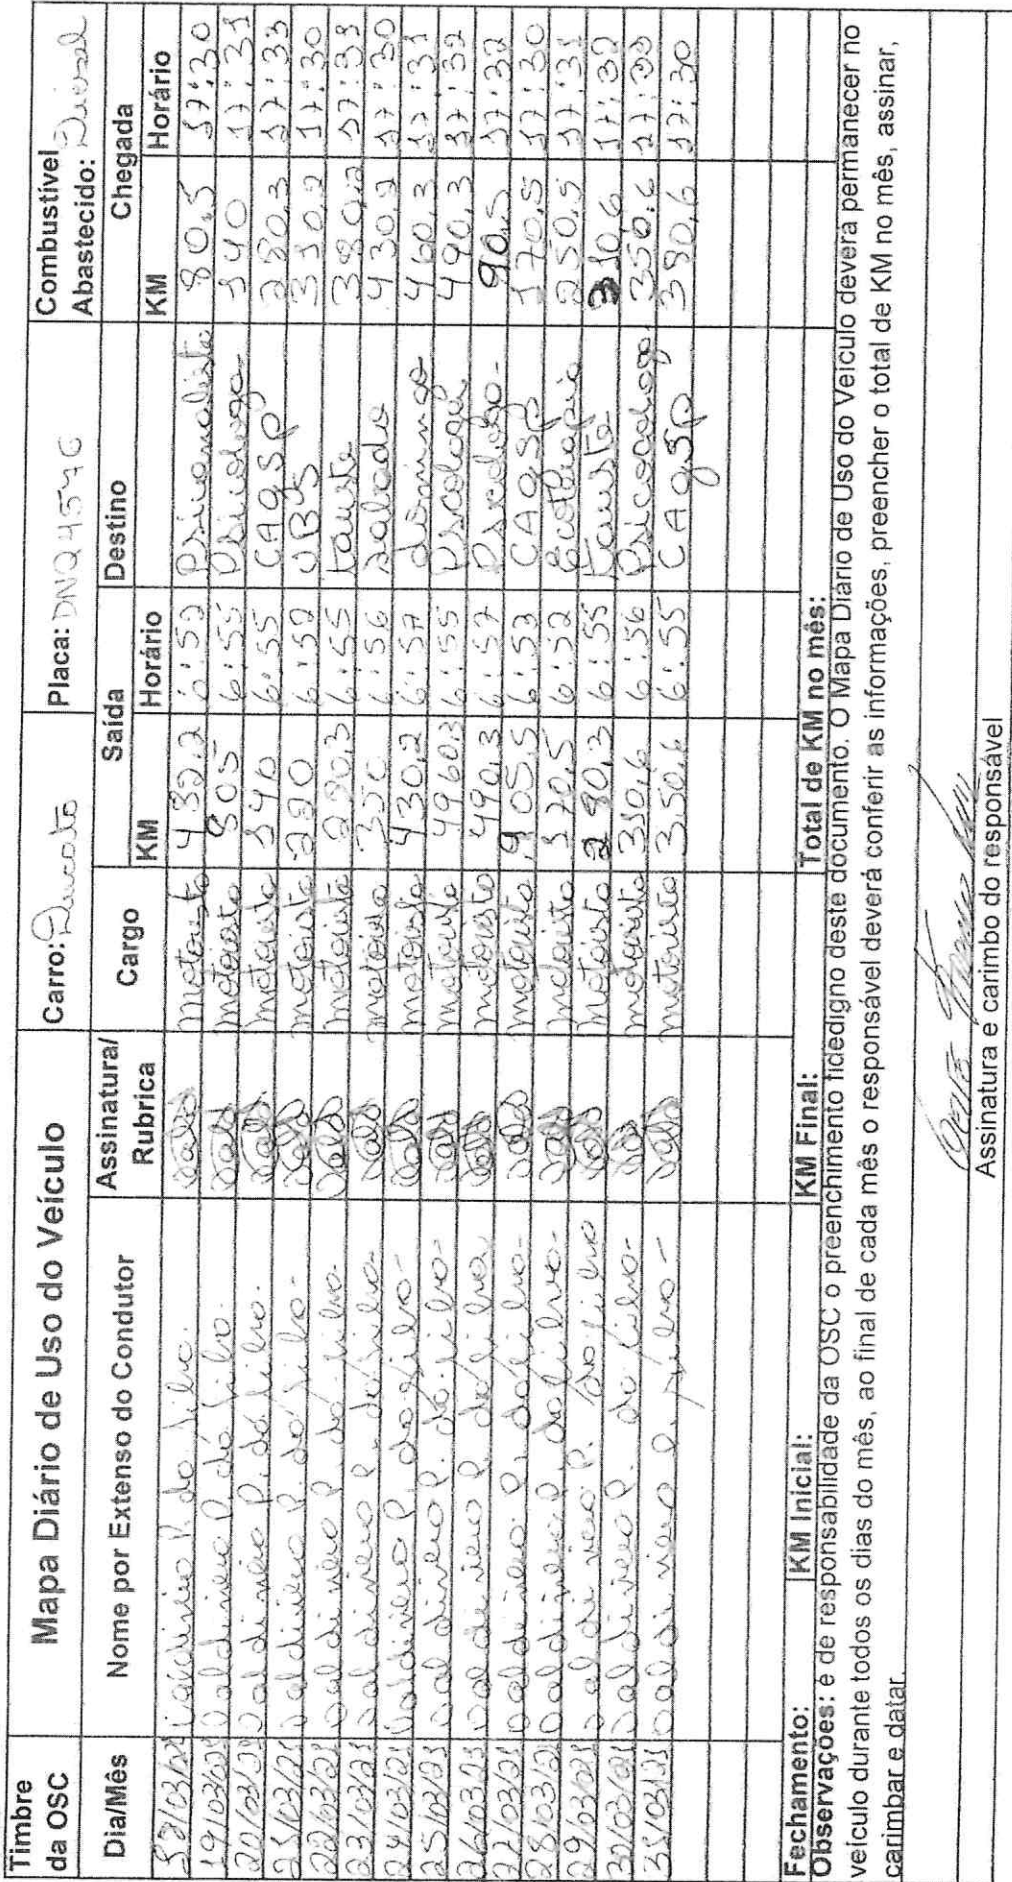 Timbre da OSC
Mapa Diário de Uso do Veículo
Carro: Ducato
Placa: DNQ4576
Combustível Abastecido: Diesel
Dia/Mês Nome por Extenso do Condutor Assinatura/ Rubrica Cargo Saída Destino Chegada
KM Horário KM Horário
18/03/21 Valdivino P. da Silva. motorista 432,2 6:52 Psicanalista 80,5 17:30
19/03/21 Valdivino P. da Silva. motorista 805 6:55 Psicologa 140 17:31
20/03/21 Valdivino P. da Silva. motorista 140 6:55 CAgSP 280,3 17:33
21/03/21 Valdivino P. da Silva. motorista 220 6:52 UBS 330,2 17:30
22/03/21 Valdivino P. da Silva. motorista 280,3 6:55 tauste 380,2 17:31
23/03/21 Valdivino P. da Silva. motorista 350 6:56 sabado 430,2 17:30
24/03/21 Valdivino P. da Silva- motorista 430,2 6:57 domingo 460,3 17:31
25/03/21 Valdivino P. da Silva- motorista 4960,3 6:55 Pscologa 490,3 17:32
26/03/21 Valdivino P. da Silva motorista 490,3 6:57 Pscologo- 90,5 17:32
27/03/21 Valdivino P. da Silva- motorista 905,5 6:53 CAgSP 170,5 17:30
28/03/21 Valdivino P. da Silva- motorista 170,5 6:52 Ecoterapia 250,5 17:31
29/03/21 Valdivino P. da Silva motorista 280,3 6:55 tauste 310,6 17:32
30/03/21 Valdivino P. da Silva- motorista 310,6 6:56 Psicologo 350,6 17:30
31/03/21 Valdivino P. Silva- motorista 350,6 6:55 CAgSP 380,6 17:30
Fechamento: KM Inicial: KM Final: Total de KM no mês:
Observações: é de responsabilidade da OSC o preenchimento fidedigno deste documento. O Mapa Diário de Uso do Veículo devera permanecer no
veículo durante todos os dias do mês, ao final de cada mês o responsável deverá conferir as informações, preencher o total de KM no mês, assinar,
carimbar e datar.
Assinatura e carimbo do responsável